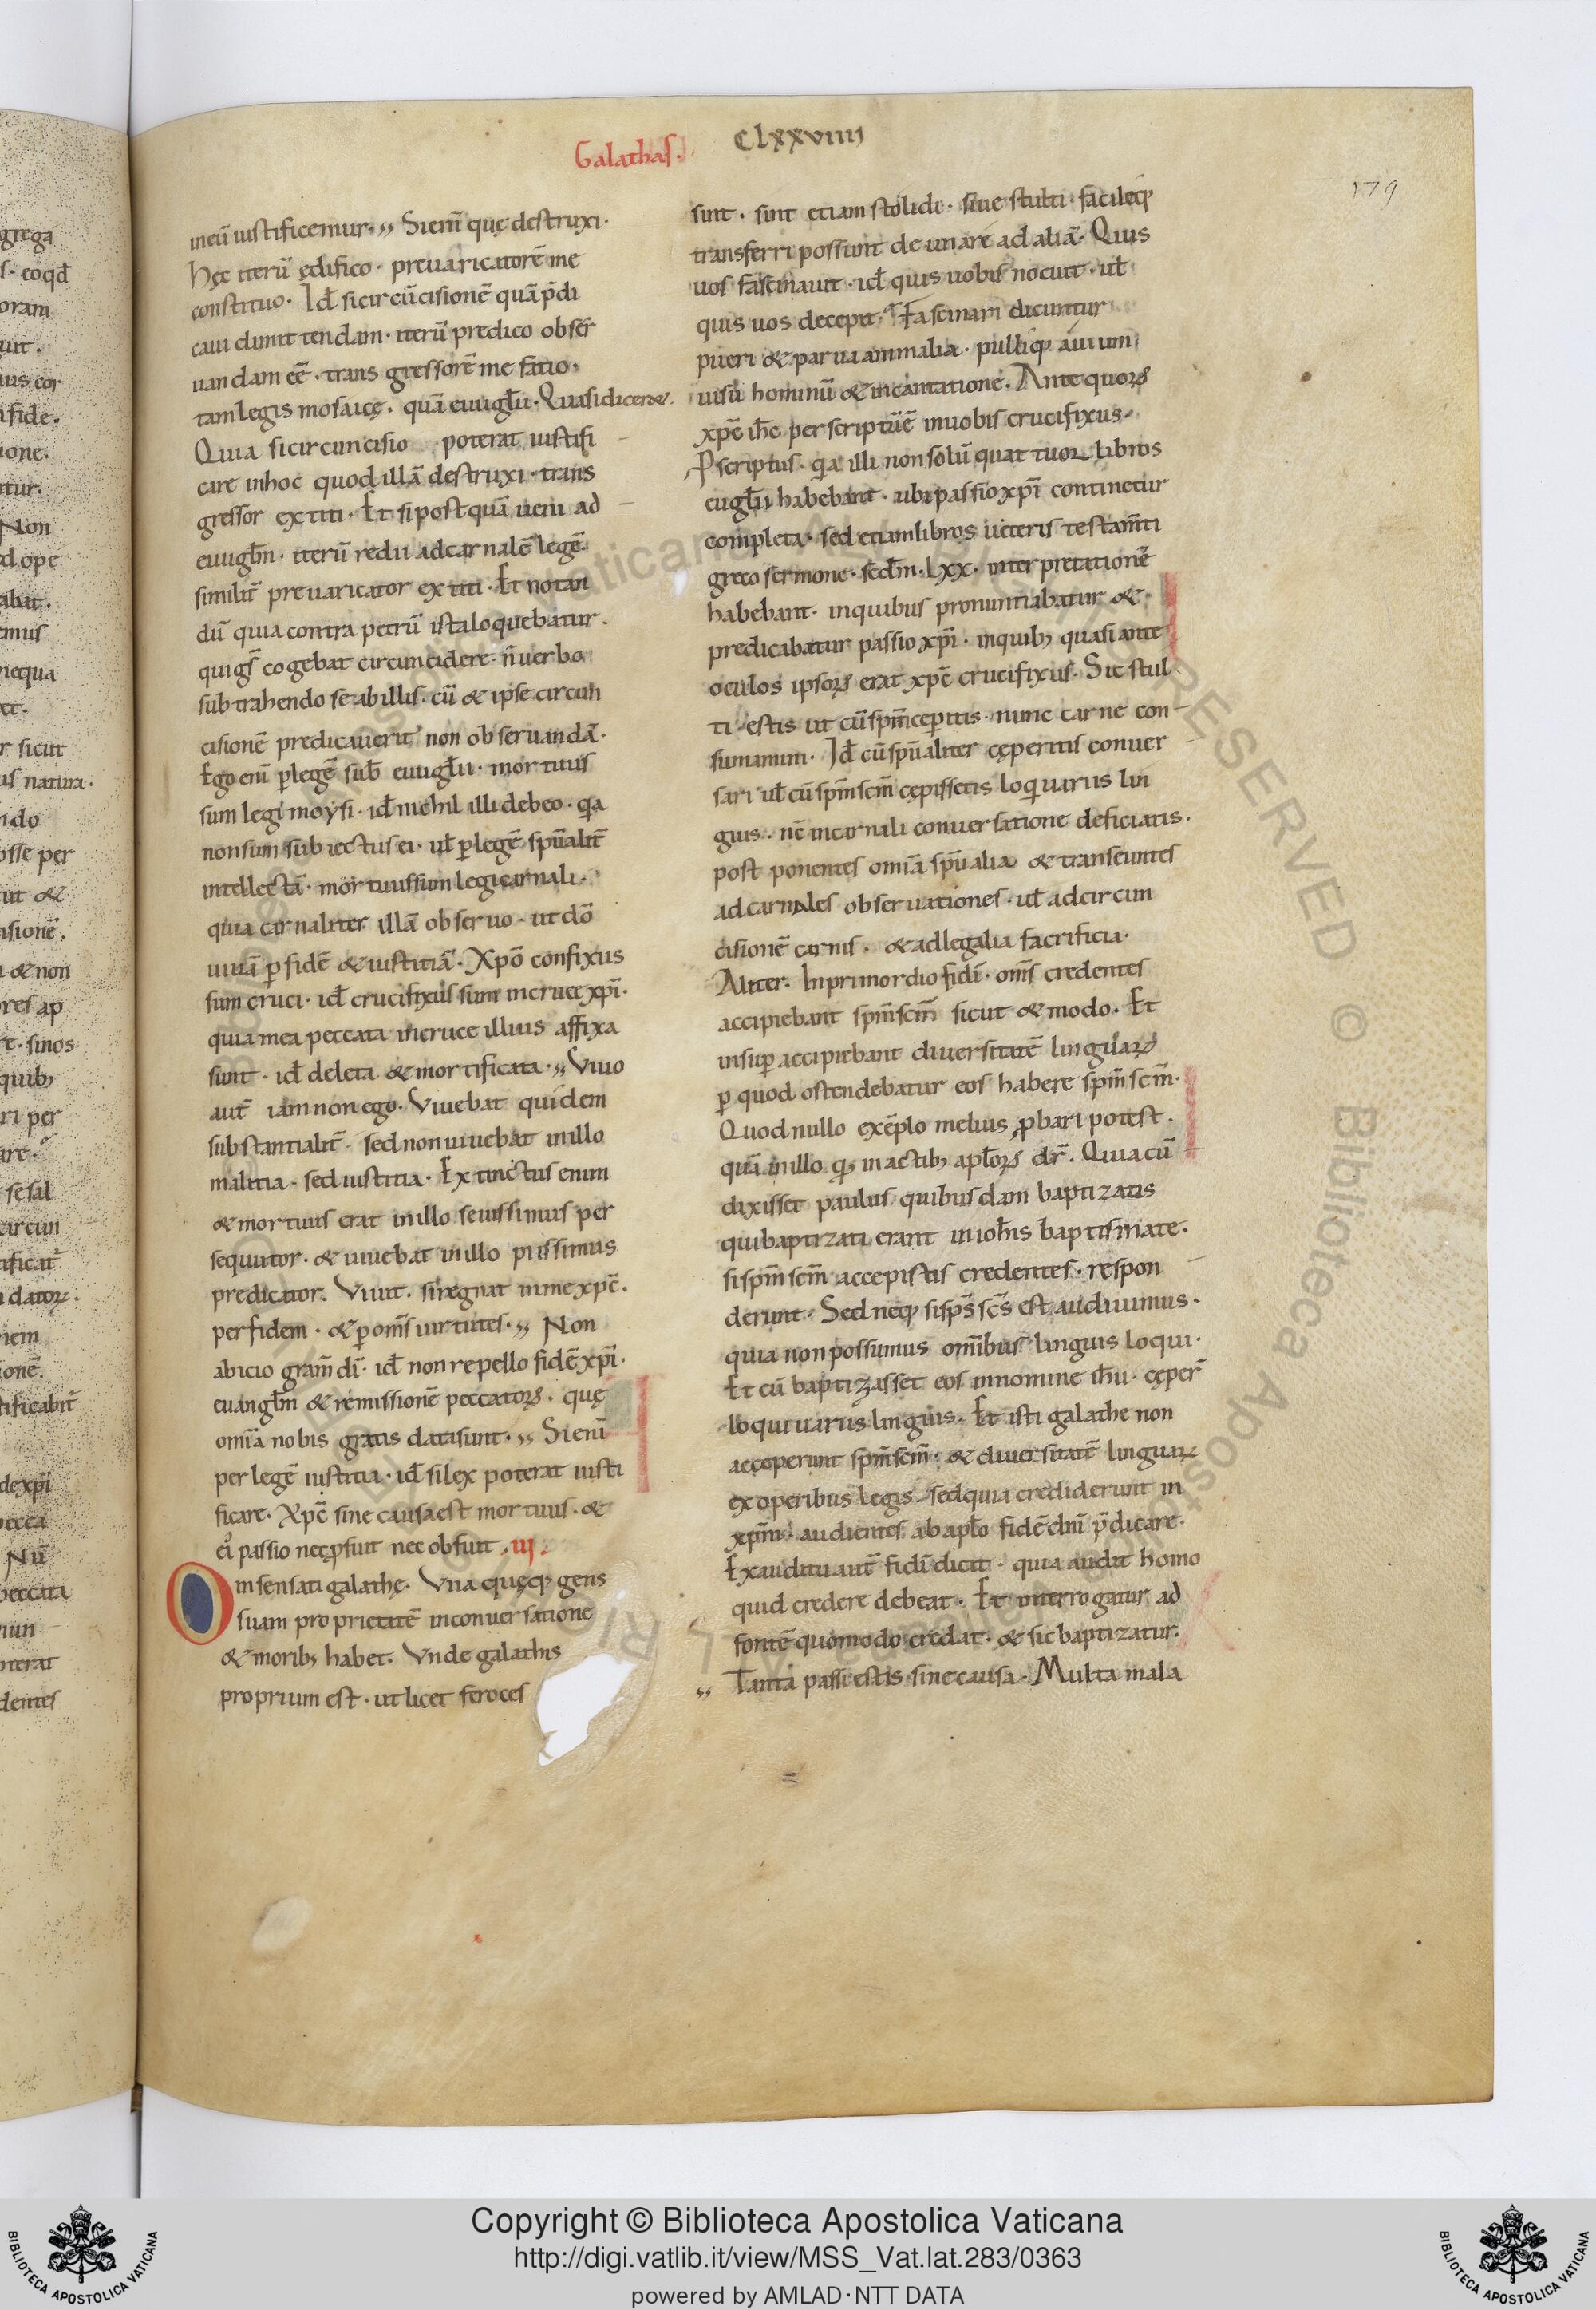 Galathas.
CLXXVIIII
179
meū iustificemur. Si eni̅ quę destruxi.
Hęc iterū ędifico. preuaricatorē me
constituo. Id̅ si circūcisionē quā p̄di
caui dimittendam. iterū predico obser
uandam eē. transgressorē me fatio,
tam legis mosaicę. quā euuḡlii. Quasi diceret.
Quia si circuncisio poterat iustifi
care in hoc quod illā destruxi. trans
gressor extiti. Et si postquā ueni ad
euuḡlm. iterū redii ad carnalē legē.
similit̄ preuaricator extiti. Et notan
dū quia contra petrū ista loquebatur.
qui gs̄ cogebat circuncidere. n̄ uerbo
subtrahendo se ab illis. cū & ipse circun
cisionē predicauerit non obseruandā.
Ego eni̅ p̱ legē sub̄ euuḡlii. mortuus
sum legi moysi. id̅ nichil illi debeo. q̱a
non sum subiectus ei. ul̄ p̱ legē sp̄ualit̄
intellectā. mortuus sum legi carnali.
quia carnaliter illā obseruo. ut dō
uiuā p̱ fidē & iustitiā. Xp̄o confixus
sum cruci. id̅ crucifixus sum in cruce xp̄i.
quia mea peccata in cruce illius affixa
sunt. id̅ deleta & mortificata. Viuo
aut̄ iam non ego. Viuebat quidem
substantialit̄. sed non uiuebat in illo
malitia. sed iustitia. Extinctus enim
& mortuus erat in illo seuissimus per
sequutor. & uiuebat in illo piissimus
predicator. Viuit. si regnat in me xp̄c.
per fidem. & p̱ om̄s uirtutes. Non
abicio gram̄ dī. id̅ non repello fidē xp̄i.
euangl̄m & remissionē peccatoꝝ. quę
om̄a nobis gratis data sunt. Si eni̅
per legē iustitia. id̅ si lex poterat iusti
ficare. Xp̄c sine causa est mortuus. &
ei passio nec ꝓfuit nec obfuit. III.
O insensati galathę. Vna quęq; gens
suam proprietatē in conuersatione
& morib; habet. Vnde galathis
proprium est. ut licet feroces
sint. sint etiam stolidi. siue stulti. facileq;
transferri possunt de una re ad aliā. Quis
uos fascinauit. id̅ quis uobis nocuit. ul̄
quis uos decepit. Fascinari dicuntur
pueri & parua animalia. pulliq; auium
uisu hominū & incantatione. Ante quoꝝ
xp̄c ih̄c perscriptū ē in uobis crucifixus.
Pscriptus. q̱a illi non solū quattuor libros
eugl̄ii habebant. ubi passio xp̄i continetur
completa. sed etiam libros ueteris testam̄ti
greco sermone. scd̄m. LXX. interpretationē
habebant. in quibus pronuntiabatur &
predicabatur passio xp̄i. in quib; quasi ante
oculos ipsoꝝ erat xp̄c crucifixus. Sic stul
ti estis ut cū sp̄m ceperitis. nunc carne con
sumamini. Id̅ cū sp̄ualiter cęperitis conuer
sari ul̄ cū sp̄m scm̄ cępissetis loqui uariis lin
guis. nē in carnali conuersatione deficiatis.
post ponentes om̄ia sp̄ualia & transeuntes
ad carnales obseruationes. ul̄ ad circun
cisionē carnis. & ad legalia sacrificia.
Aliter. In primordio fidi̅. om̄s credentes
accipiebant sp̄m scm̄ sicut & modo. Et
insup̱ accipiebant diuersitatē linguaꝝ
p̱ quod ostendebatur eos habere sp̄m scm̄.
Quod nullo exēplo melius ꝓbari potest.
quā in illo q̱; in actib; apl̄oꝝ dr̄. Quia cū
dixisset paulus quibusdam baptizatis
qui baptizati erant in ioh̄is baptismate.
si sp̄m scm̄ accepistis credentes. respon
derunt. Sed neq; si sp̄s sc̄s est audiuimus.
quia non possumus om̄ibus linguis loqui.
Et cū baptizasset eos in nomine ih̄u. cęper̄
loqui uariis linguis. Et isti galathe non
acceperunt sp̄m scm̄. & diuersitatē linguaꝝ
ex operibus legis. sed quia crediderunt in
xp̄m. audientes ab apl̄o fidē dn̄i p̄dicare.
Ex auditu aut̄ fidi̅ dicit. quia audit homo
quid credere debeat. Et interrogatur ad
fontē quomodo credat. & sic baptizatur.
Tanta passi estis sine causa. Multa mala
Copyright © Biblioteca Apostolica Vaticana
http://digi.vatlib.it/view/MSS_Vat.lat.283/0363
powered by AMLAD·NTT DATA